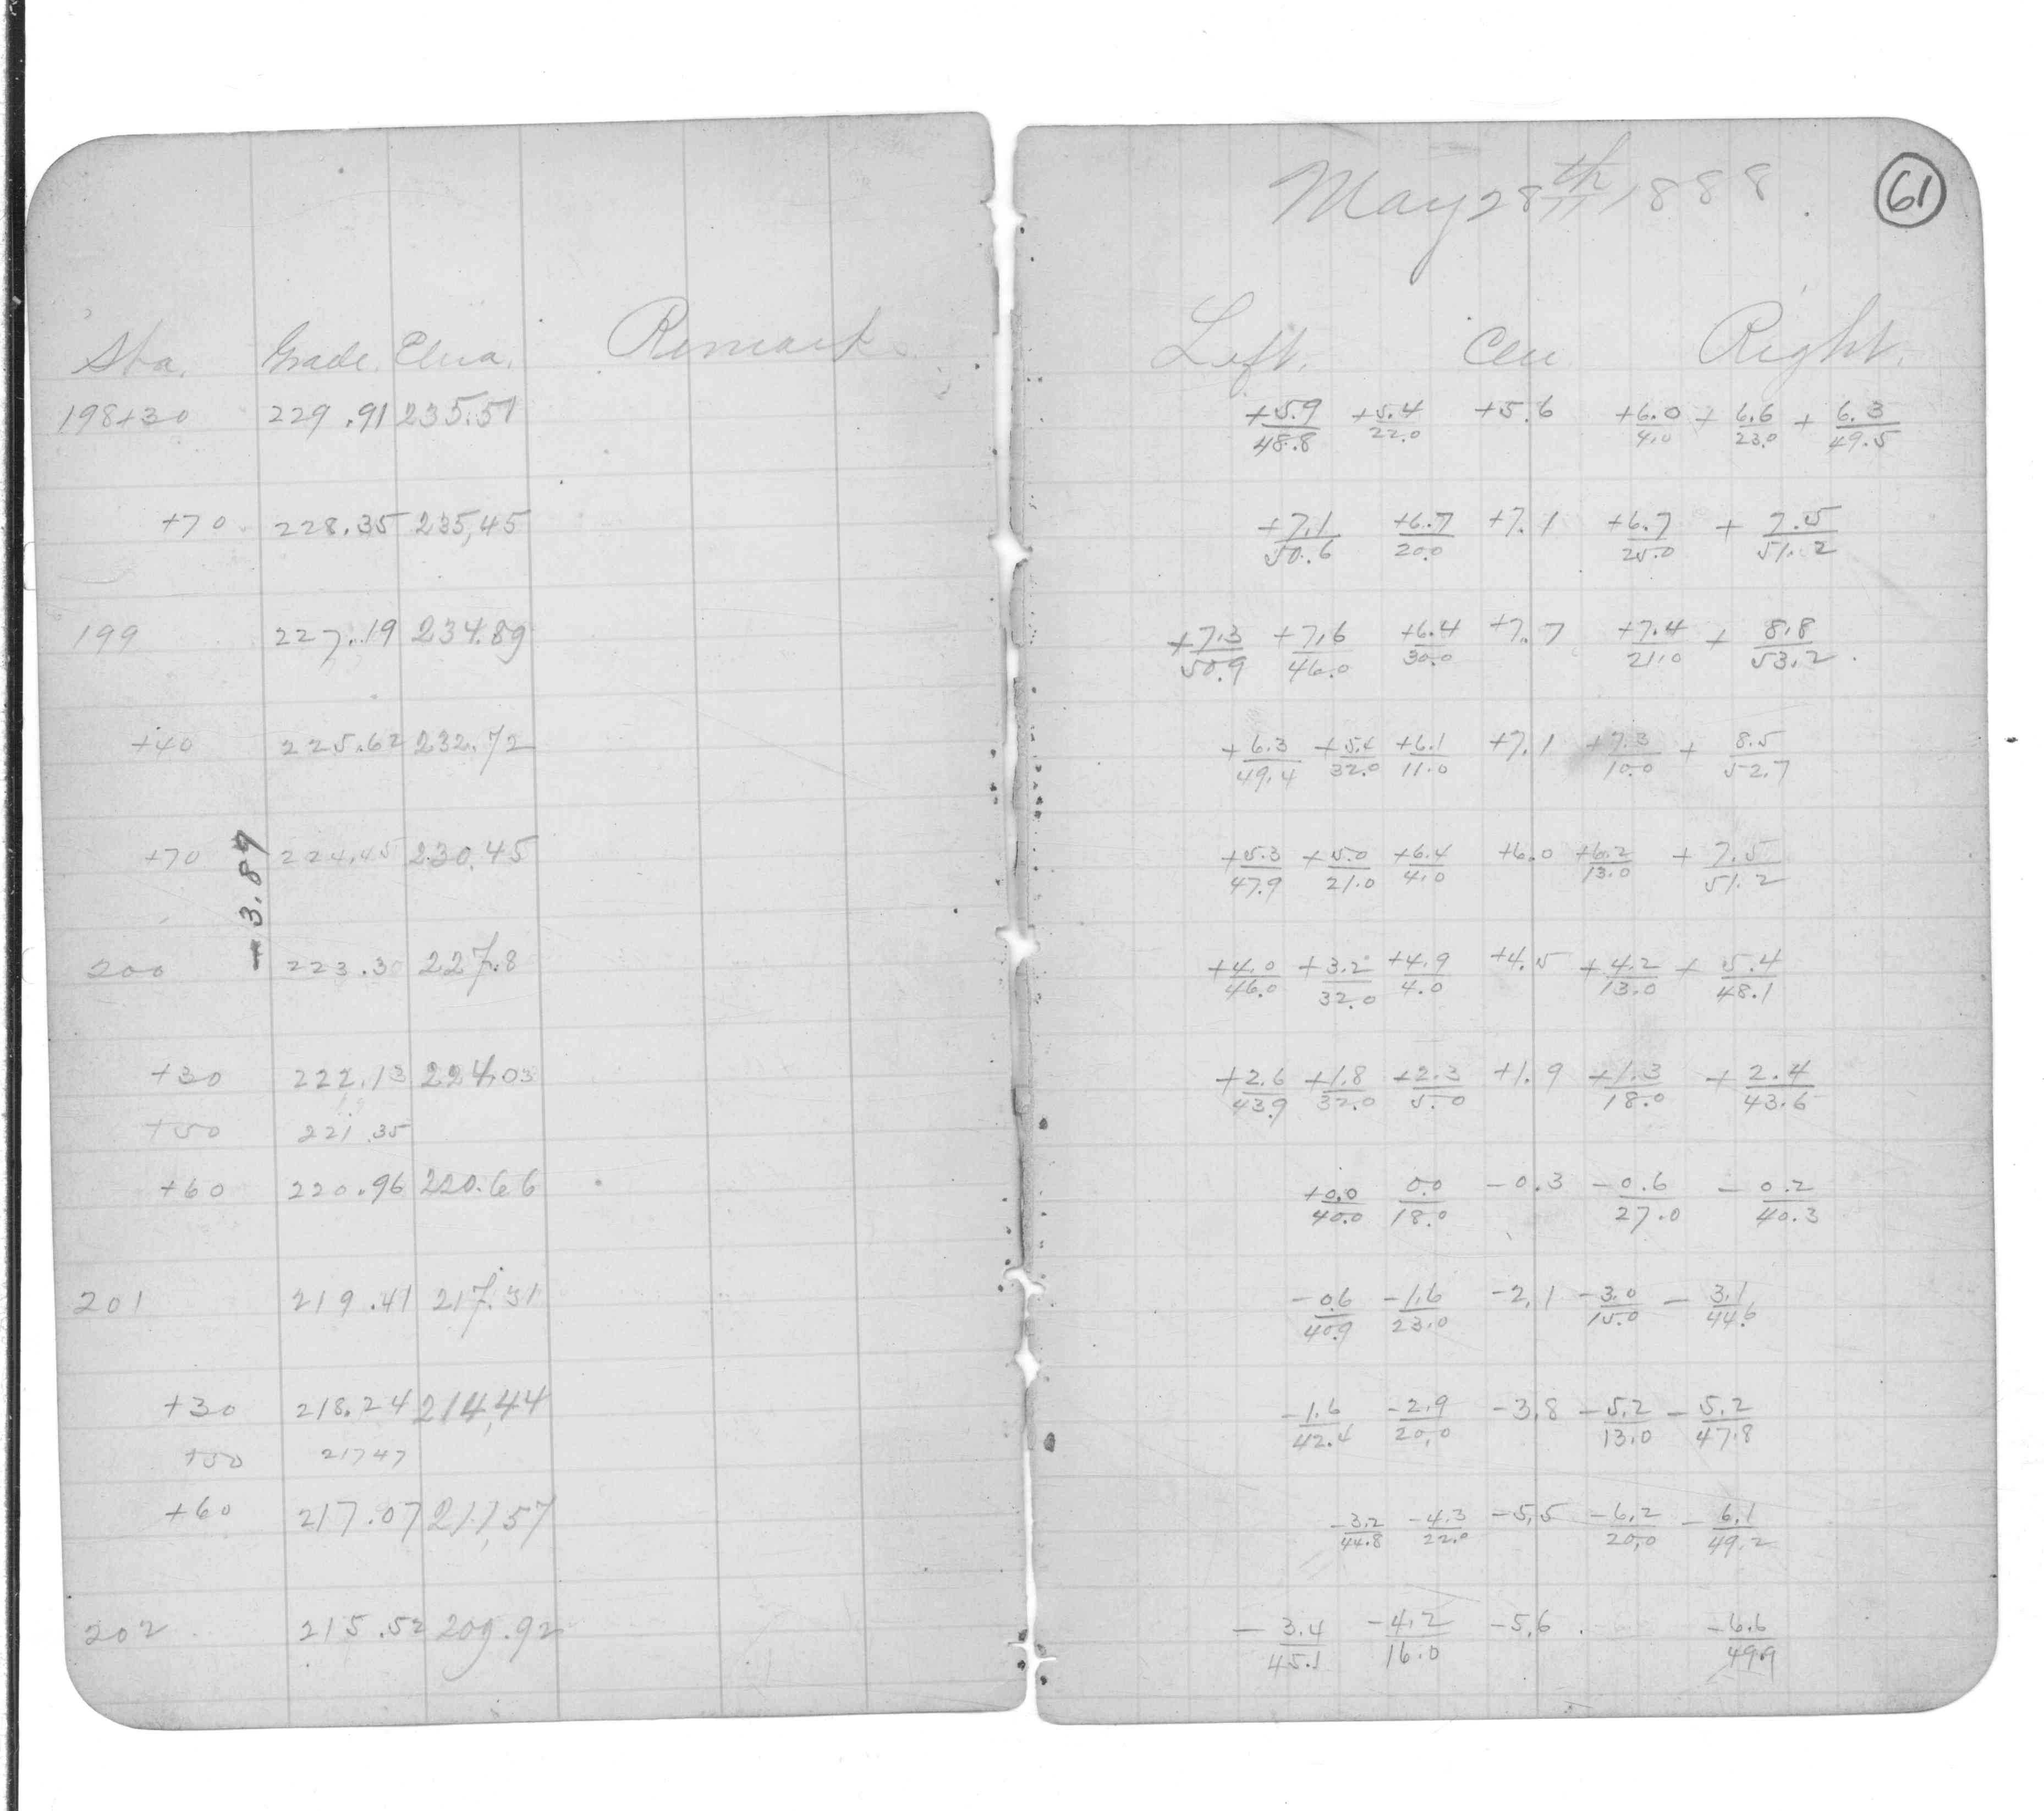 May 28th, 1888.
61
Sta. Grade. Eleva. Remarks Left. Cen Right.
198+30 229.91 235.51 +5.9/48.8 +5.4/22.0 +5.6 +6.0/4.0 + 6.6/23.0 + 6.3/49.5
+70 228.35 235,45 +7.1/50.6 +6.7/20.0 +7.1 +6.7/25.0 + 7.5/51.2
199 227.19 234.89 +7.3/50.9 +7.6/46.0 +6.4/30.0 +7.7 +7.4/21.0 + 8.8/53.2
+40 225.62 232.72 +6.3/49.4 +5.4/32.0 +6.1/11.0 +7.1 +7.3/10.0 + 8.5/52.7
+70 224.45 230.45 +5.3/47.9 +5.0/21.0 +6.4/4.0 +6.0 +6.2/13.0 + 7.5/51.2
-3.89
200 223.30 227.8 +4.0/46.0 +3.2/32.0 +4.9/4.0 +4.5 +4.2/13.0 + 5.4/48.1
+30 222.13 224.03 +2.6/43.9 +1.8/32.0 +2.3/5.0 +1.9 +1.3/18.0 + 2.4/43.6
+50 221.35
+60 220.96 220.66 +0.0/40.0 0.0/18.0 -0.3 -0.6/27.0 - 0.2/40.3
201 219.41 217.31 -0.6/40.9 -1.6/23.0 -2.1 -3.0/15.0 - 3.1/44.6
+30 218.24 214,44 -1.6/42.4 -2.9/20.0 -3.8 -5.2/13.0 -5.2/47.8
+50 21747
+60 217.07 211,57 -3.2/44.8 -4.3/22.0 -5.5 -6.2/20.0 - 6.1/49.2
202 215.52 209.92 - 3.4/45.1 -4.2/16.0 -5.6 -6.6/49.9